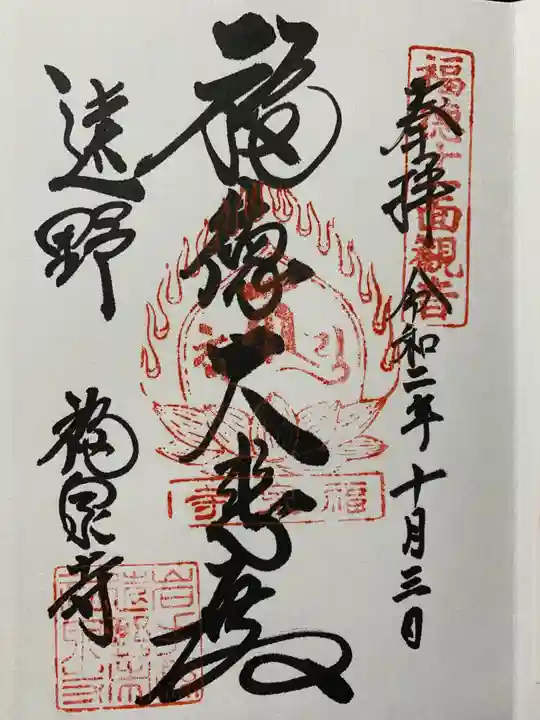 福徳十一面観音
奉拝 令和二年十月三日
福徳大悲殿
福泉寺
遠野
福泉寺